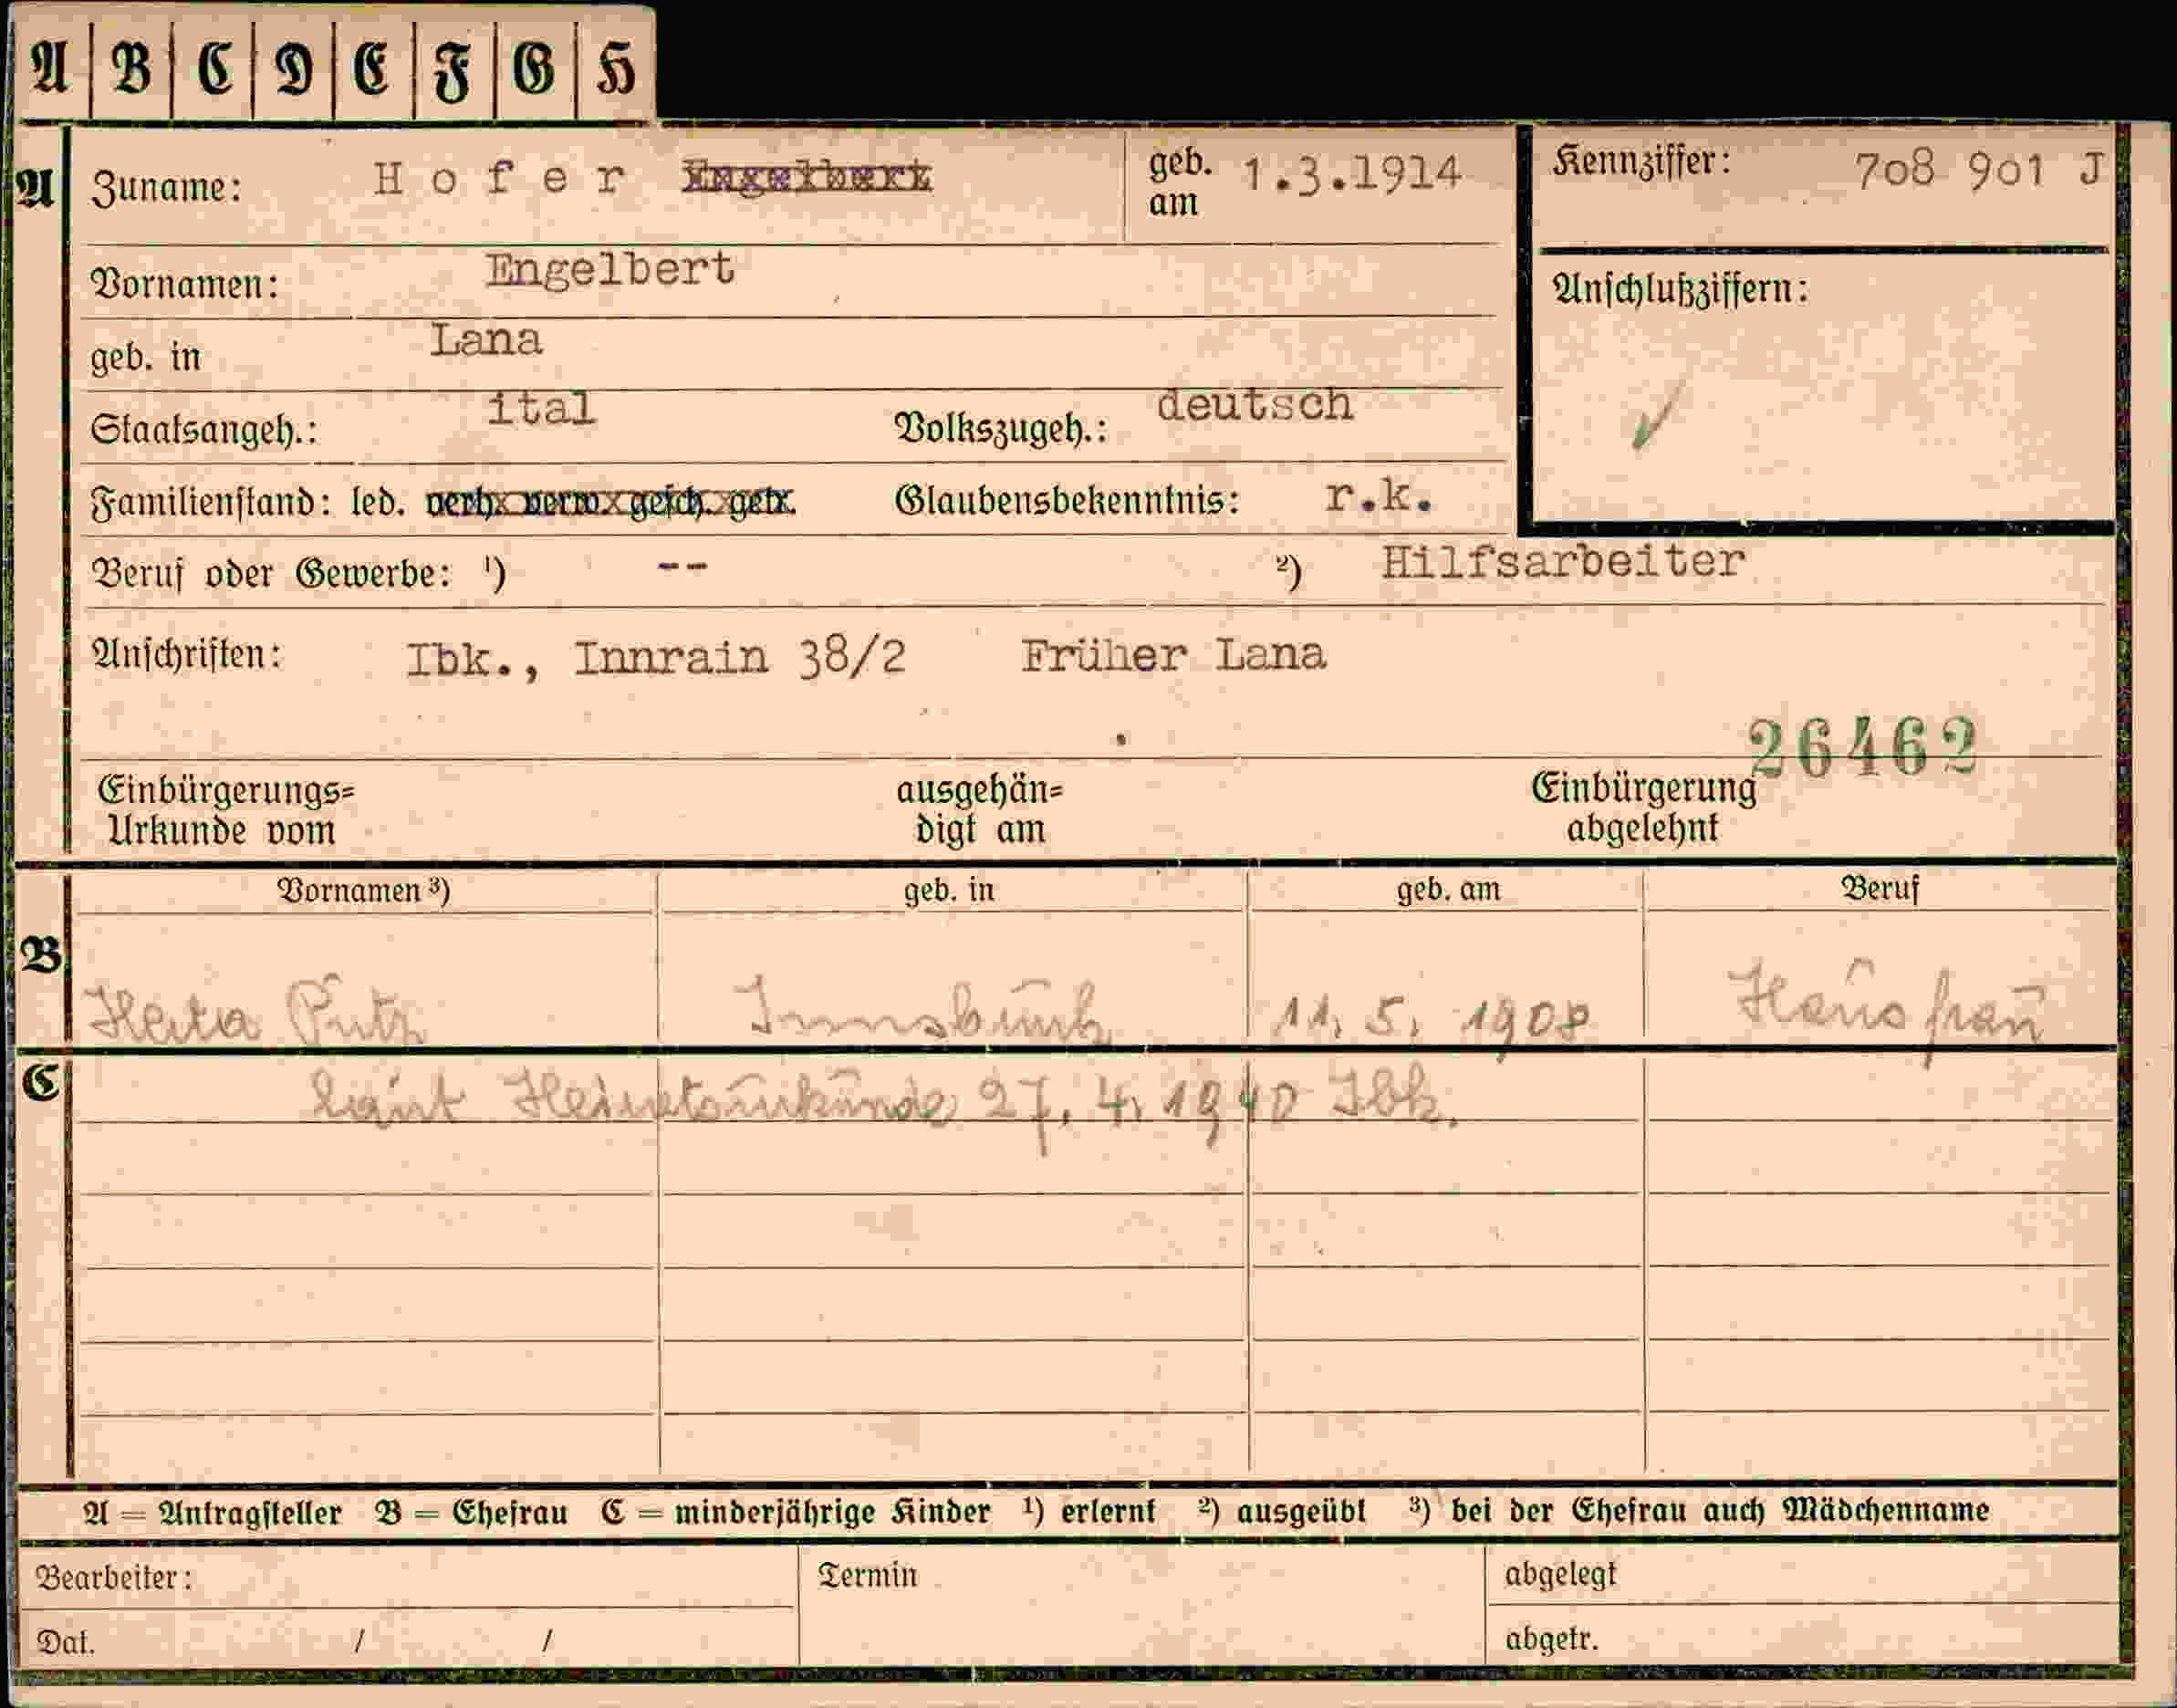 A B C D E F G H
A Zuname: Hofer Engelbert geb. am 1.3.1914 Kennziffer: 708 901 J
Vornamen: Engelbert Anschlußziffern:
geb. in Lana
Staatsangeh.: ital Volkszugeh.: deutsch
Familienstand: led. verh. verw. gesch. getr. Glaubensbekenntnis: r.k.
Beruf oder Gewerbe: ¹) -- ²) Hilfsarbeiter
Anschriften: Ibk., Innrain 38/2 Früher Lana
26462
Einbürgerungs= ausgehän= Einbürgerung
Urkunde vom digt am abgelehnt
Vornamen ³) geb. in geb. am Beruf
B Herta Putz Innsbruck 11. 5. 1908 Hausfrau
C laut Heiratsurkunde 27. 4. 1940 Ibk.
A = Antragsteller B = Ehefrau C = minderjährige Kinder ¹) erlernt ²) ausgeübt ³) bei der Ehefrau auch Mädchenname
Bearbeiter: Termin abgelegt
Dat. / / abgetr.